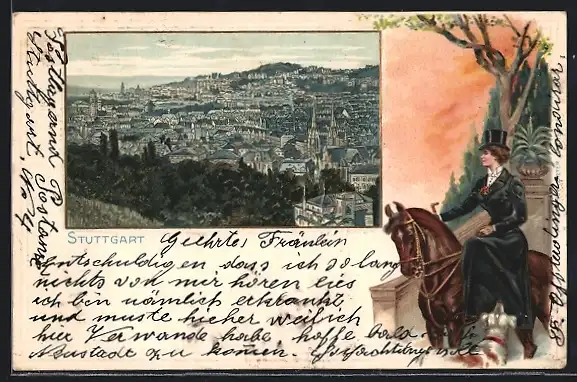 STUTTGART
Geehrtes Fräulein
entschuldigen dass ich so lang
nichts von mir hören lies
ich bin nämlich erkrankt
und muste hieher weil ich
hier Verwande habe, hoffe bald
Neustadt zu komen.
Postlagernd
Stuttgart,